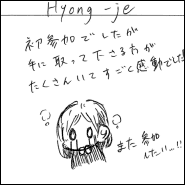 Hyong-je
初参加でしたが
手に取って下さる方が
たくさんいてすごく感動でした!
また参加
したい..!!